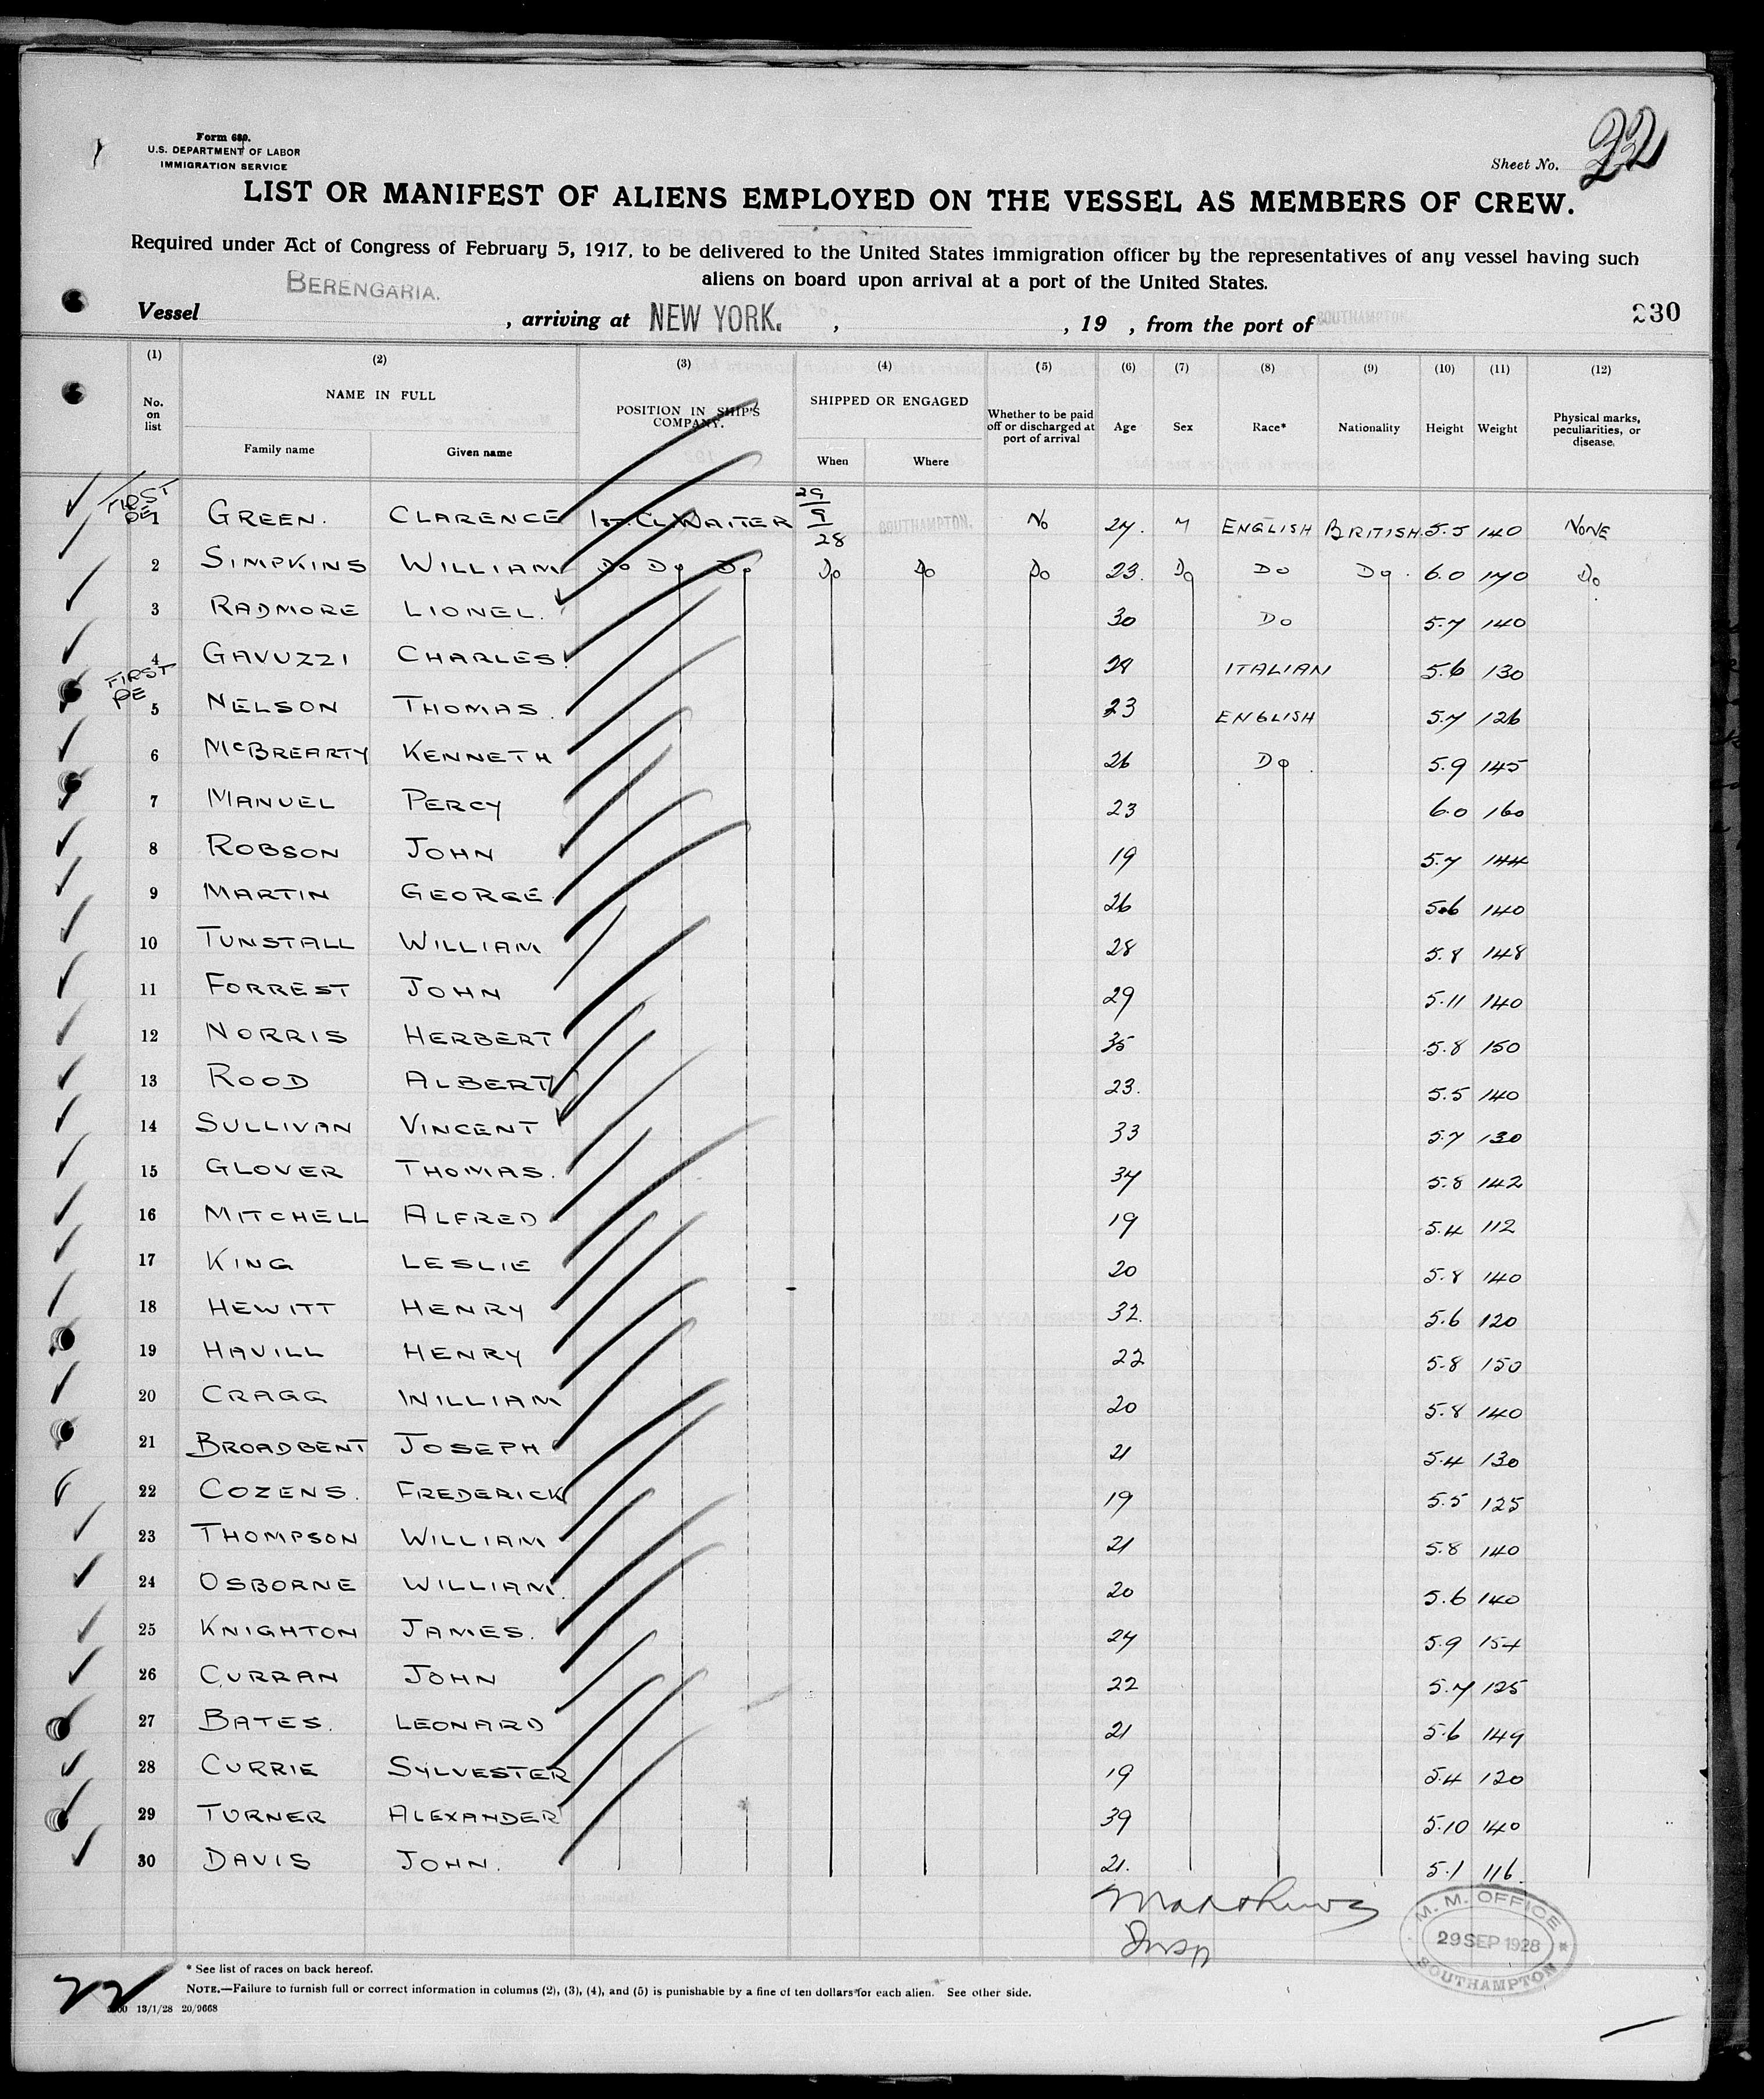 Form 680.
U.S. DEPARTMENT OF LABOR
IMMIGRATION SERVICE
Sheet No. 22
LIST OR MANIFEST OF ALIENS EMPLOYED ON THE VESSEL AS MEMBERS OF CREW.
Required under Act of Congress of February 5, 1917, to be delivered to the United States immigration officer by the representatives of any vessel having such
aliens on board upon arrival at a port of the United States.
Vessel BERENGARIA. , arriving at NEW YORK. , , 19 , from the port of SOUTHAMPTON. 230
(1) (2) (3) (4) (5) (6) (7) (8) (9) (10) (11) (12)
No. on list NAME IN FULL Family name Given name POSITION IN SHIP'S COMPANY. SHIPPED OR ENGAGED When Where Whether to be paid off or discharged at port of arrival Age Sex Race* Nationality Height Weight Physical marks, peculiarities, or disease.
FIRST PE 1 GREEN. CLARENCE 1ST. CL WAITER 29/9/28 SOUTHAMPTON. No 27. M ENGLISH BRITISH 5.5 140 NONE
2 SIMPKINS WILLIAM Do Do Do Do Do Do 23. Do Do Do. 6.0 170 Do
3 RADMORE LIONEL. 30 Do 5.7 140
4 GAVUZZI CHARLES. 28 ITALIAN 5.6 130
FIRST PE 5 NELSON THOMAS. 23 ENGLISH 5.7 126
6 McBREARTY KENNETH 26 Do. 5.9 145
7 MANUEL PERCY 23 6.0 160
8 ROBSON JOHN 19 5.7 144
9 MARTIN GEORGE 26 5.6 140
10 TUNSTALL WILLIAM 28 5.8 148
11 FORREST JOHN 29 5.11 140
12 NORRIS HERBERT 35 5.8 150
13 ROOD ALBERT 23. 5.5 140
14 SULLIVAN VINCENT 33 5.7 130
15 GLOVER THOMAS. 34 5.8 142
16 MITCHELL ALFRED 19 5.4 112
17 KING LESLIE 20 5.8 140
18 HEWITT HENRY 32. 5.6 120
19 HAVILL HENRY 22 5.8 150
20 CRAGG WILLIAM 20 5.8 140
21 BROADBENT JOSEPH 21 5.4 130
22 COZENS. FREDERICK 19 5.5 125
23 THOMPSON WILLIAM 21 5.8 140
24 OSBORNE WILLIAM 20 5.6 140
25 KNIGHTON JAMES. 24 5.9 154
26 CURRAN JOHN 22 5.7 125
27 BATES. LEONARD 21 5.6 149
28 CURRIE SYLVESTER 19 5.4 120
29 TURNER ALEXANDER 39 5.10 140
30 DAVIS JOHN. 21. 5.1 116.
Matthews
M. M. OFFICE
29 SEP 1928
SOUTHAMPTON
* See list of races on back hereof.
NOTE.—Failure to furnish full or correct information in columns (2), (3), (4), and (5) is punishable by a fine of ten dollars for each alien. See other side.
22
13/1/28 20/9668